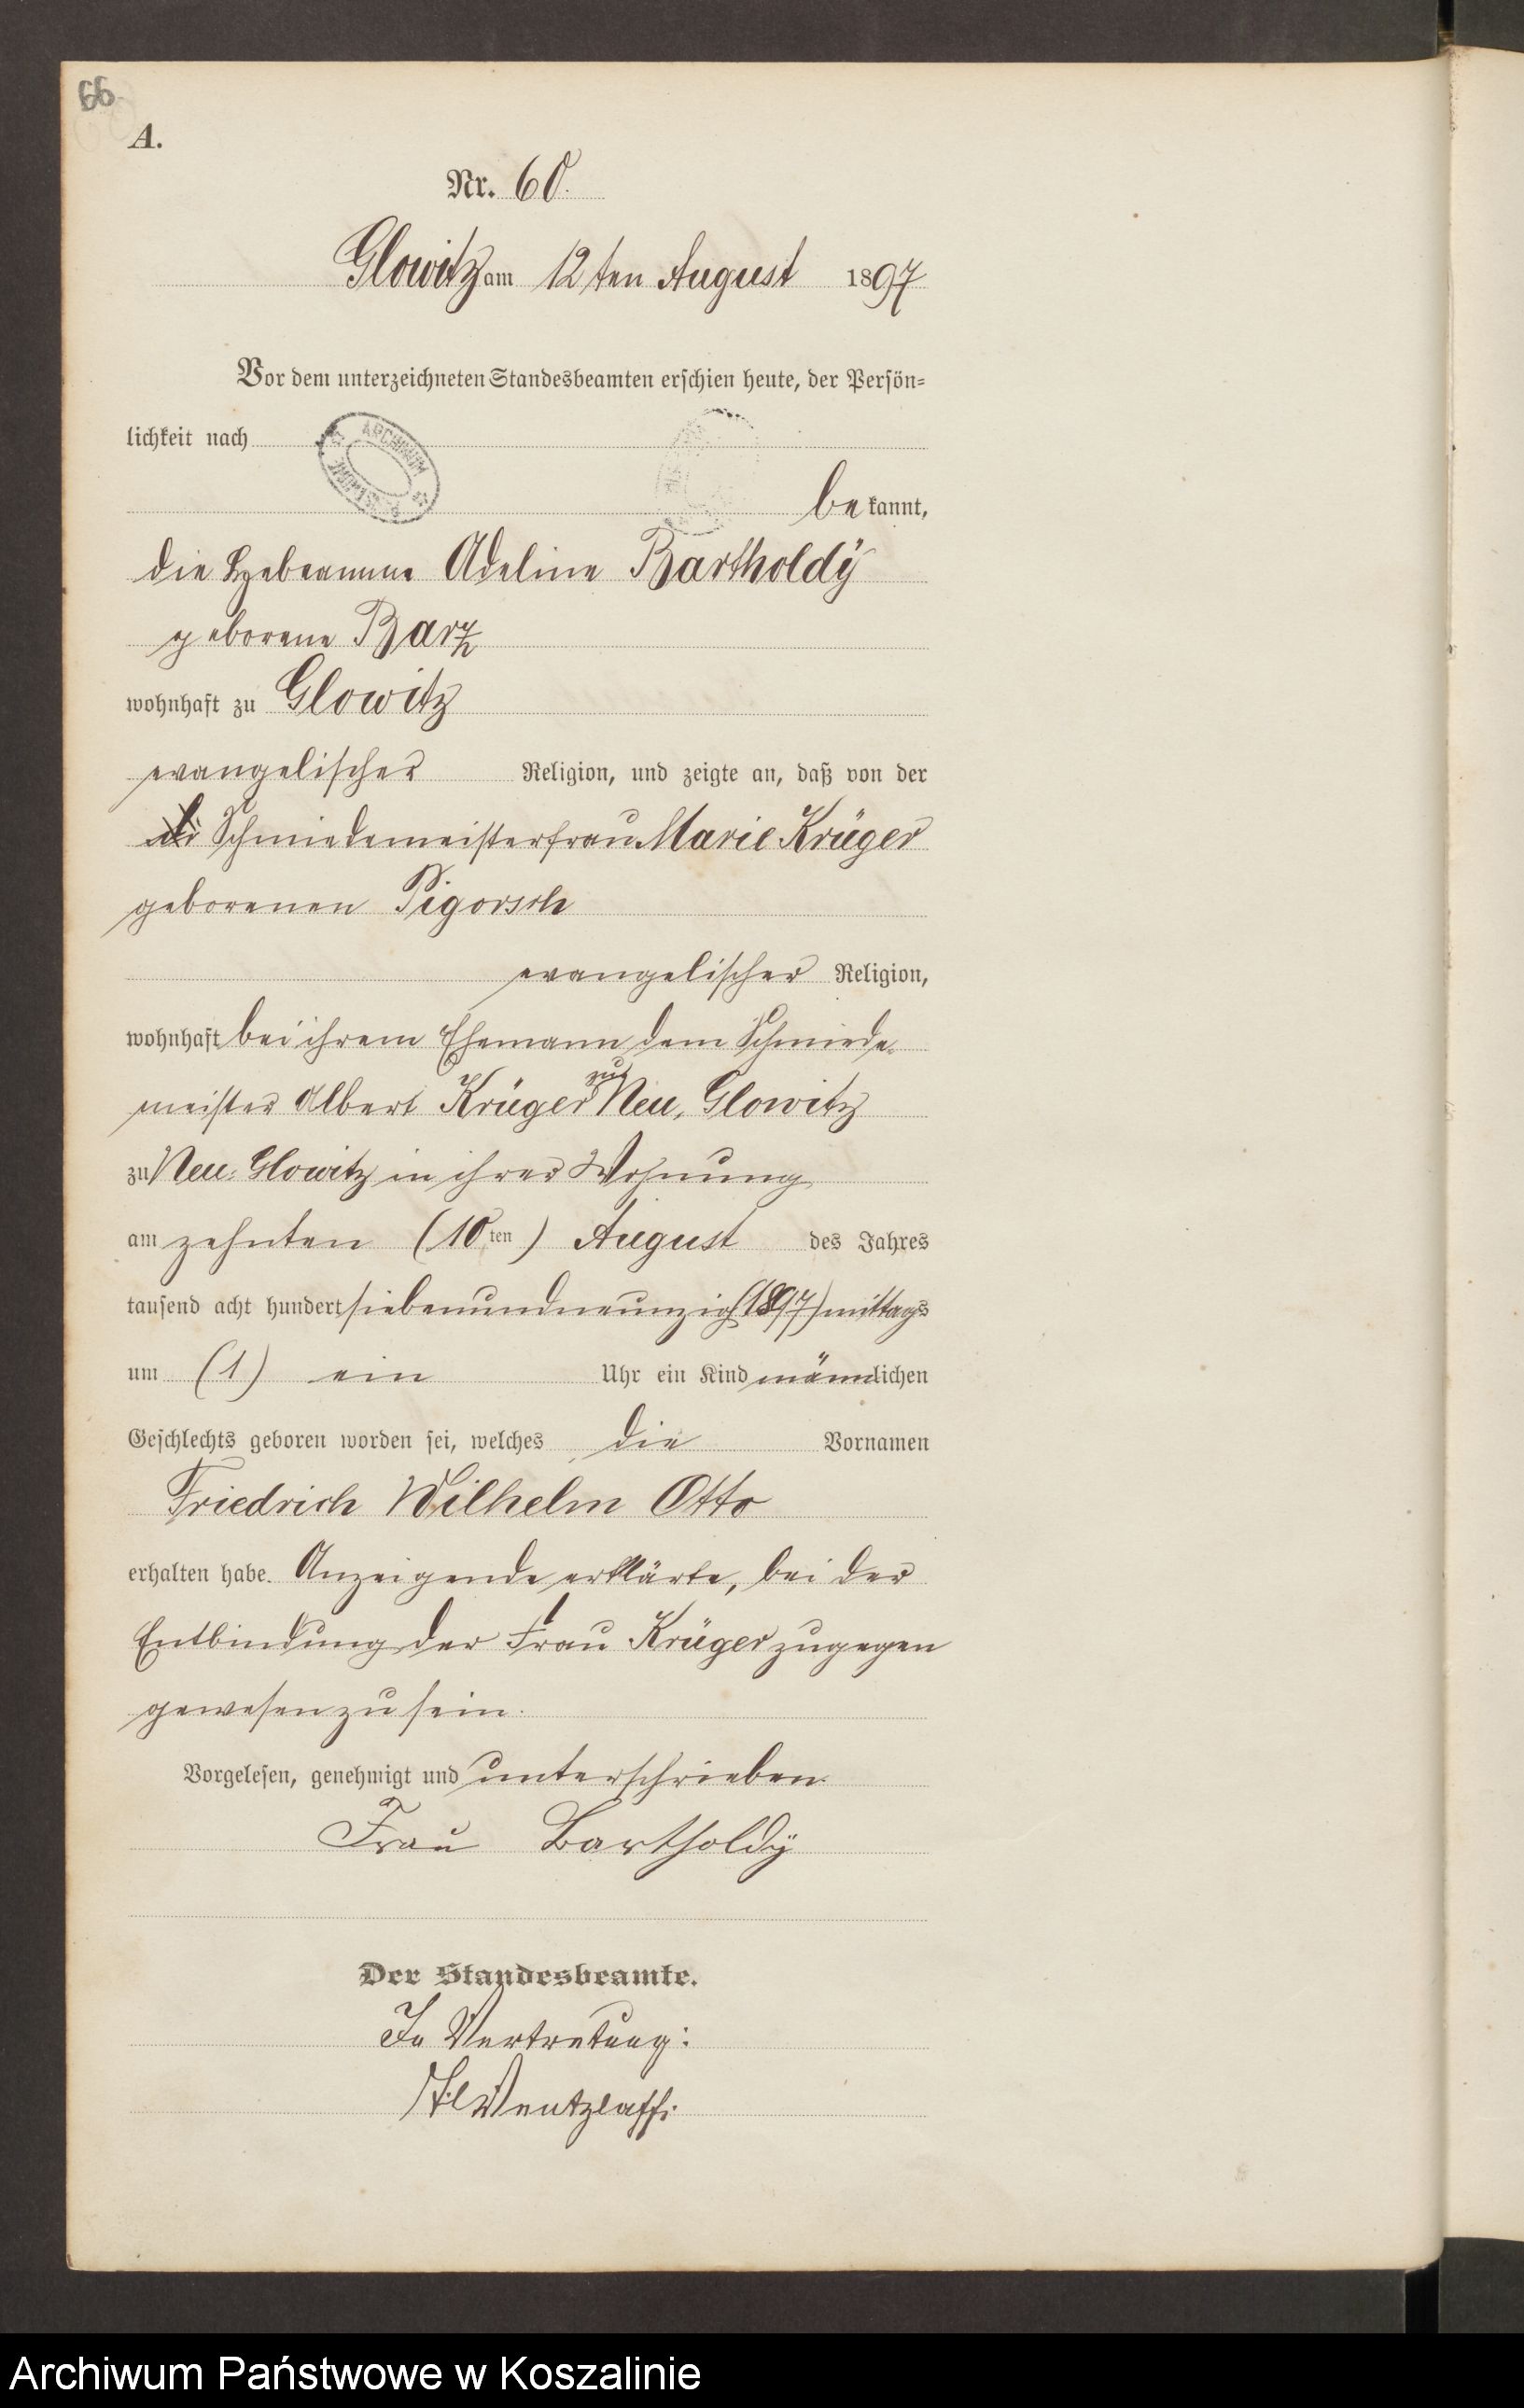 66
A.
Nr. 60.
Glowitz am 12ten August 1897
Vor dem unterzeichneten Standesbeamten erschien heute, der Persön-
lichkeit nach
ARCHIWUM
bekannt,
die Hebeamme Adeline Bartholdÿ
geborene Barz
wohnhaft zu Glowitz
evangelischer Religion, und zeigte an, daß von der
Schmiedemeisterfrau Marie Krüger
geborenen Pigorsch
evangelischer Religion,
wohnhaft bei ihrem Ehemann dem Schmiede-
meister Albert Krüger zu Neu-Glowitz
zu Neu-Glowitz in ihrer Wohnung
am zehnten (10ten) August des Jahres
tausend acht hundert siebenundneunzig (1897) mittags
um (1) ein Uhr ein Kind männlichen
Geschlechts geboren worden sei, welches die Vornamen
Friedrich Wilhelm Otto
erhalten habe. Anzeigende erklärte, bei der
Entbindung der Frau Krüger zugegen
gewesen zu sein.
Vorgelesen, genehmigt und unterschrieben.
Frau Bartholdÿ
Der Standesbeamte.
In Vertretung:
Wentzlaff.
Archiwum Państwowe w Koszalinie